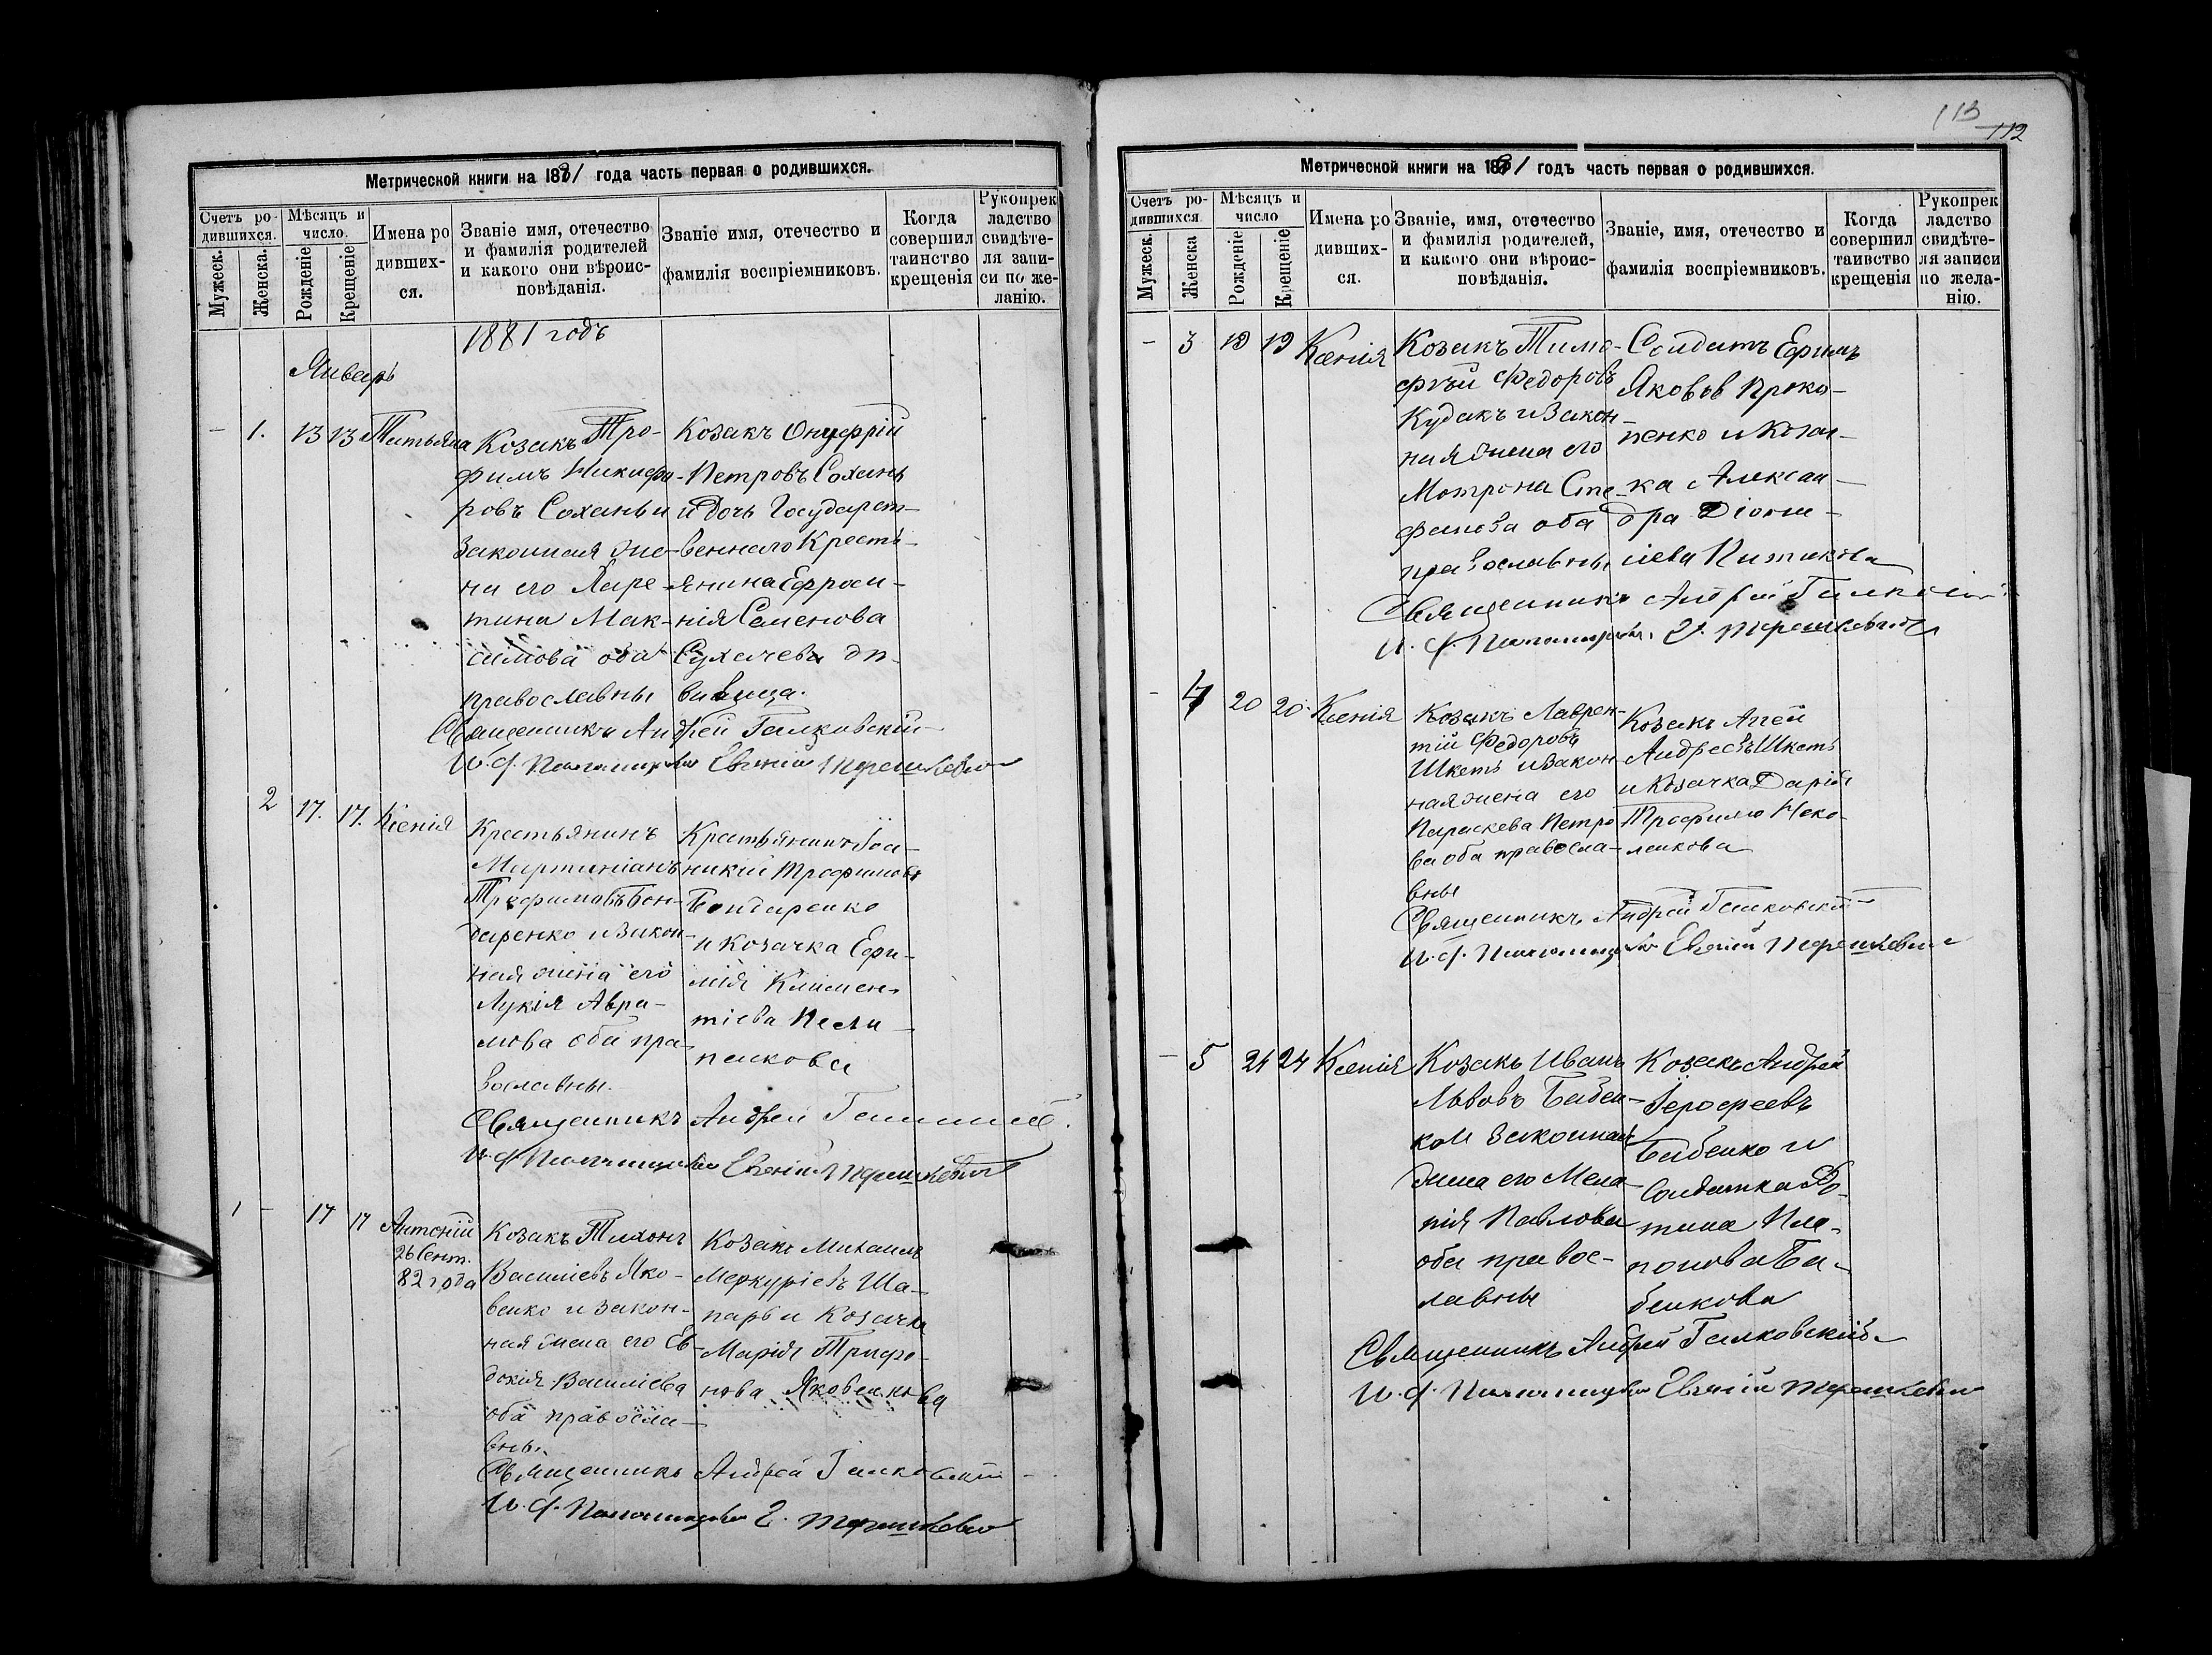 Метрической книги на 1881 года часть первая о родившихся.
Счетъ родившихся. Мѣсяцъ и число. Имена родившихся. Званіе имя, отечество и фамилія родителей и какого они вѣроисповѣданія. Званіе имя, отечество и фамилія воспріемниковъ. Когда совершил таинство крещенія Рукопрекладство свидѣтеля записи по желанію.
Мужеск. Женска. Рожденіе Крещеніе
1881 годъ
Январь
- 1. 13 13 Татьяна
Козакъ Тро-
фимъ Никифо-
ровъ Сохань и
законная же-
на его Харе-
тина Мак-
симова оба
православны
Козакъ Онуфрій
Петровъ Сохань
и дочь Государст-
веннаго Кресть-
янина Ефроси-
нія Семенова
Сухачева дѣ-
вица.
Священникъ Андрей Галковскій
И. д. Псаломщика Евгеній Терешкевич
2 17. 17. Ксенія
Крестьянинъ
Мартиніанъ
Трофимовъ Бон-
даренко и закон-
ная жена его
Лукія Авра-
мова оба пра-
вославны.
Крестьянинъ Іоа-
никій Трофимовъ
Бондаренко
и Козачка Ефи-
мія Климен-
тіева
Священникъ Андрей
И. д. Псаломщика Евгеній Терешкевич
1 - 17 17 Антоній
26 Сент.
82 года
Козакъ Тихонъ
Василіевъ Яко-
венко и закон-
ная жена его Ев-
докія Василіева
оба правосла-
вны.
Козакъ Михаилъ
Меркуріевъ Ша-
паръ и Козачка
Марія Трифо-
нова Яковенкова
Священникъ Андрей Галковскій
И. д. Псаломщика Е. Терешкевич
113
112
Метрической книги на 1881 годъ часть первая о родившихся.
Счетъ родившихся Мѣсяцъ и число Имена родившихся. Званіе, имя, отечество и фамилія родителей, и какого они вѣроисповѣданія. Званіе, имя, отечество и фамилія воспріемниковъ. Когда совершил таинство крещенія Рукопрекладство свидѣтеля записи по желанію.
Мужеск. Женска Рожденіе Крещеніе
- 3 19 19 Ксенія
Козакъ Тимо-
фѣй Федоровъ
Кудакъ и закон-
ная жена его
Мотрона Сте-
фанова оба
православны
Солдатъ Ефимъ
Яковѣв Проко-
пенко и Козач-
ка Алексан-
дра Діони-
сіева
Священникъ Андрей Галковскій
И. д. Псаломщика Е. Терешкевич
- 4 20 20 Ксенія
Козакъ Лаврен-
тій Федоровъ
Шкеть и закон-
ная жена его
Параскева Петро-
ва оба правосла-
вны
Козакъ
Андреевъ Шкеть
и Козачка Дарія
Трофимо
Священникъ Андрей Галковскій
И. д. Псаломщика Евгеній Терешкевич
- 5 24 24 Ксенія
Козакъ Иванъ
Львовъ Бабен-
ко и законная
жена его Мела-
нія Павлова
оба правос-
лавны
Козакъ Андрей
Іерофеевъ
Бабенко и
Солдатка Фо-
тина
Ба-
бенкова
Священникъ Андрей Галковскій
И. д. Псаломщика Евгеній Терешкевич